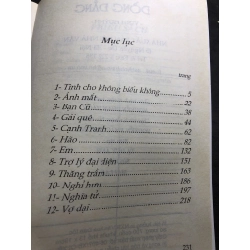 Mục lục
trang
1- Tình cho không biếu không 5
2- Ánh mắt 22
3- Bạn Cũ 38
4- Gái quê 44
5- Cạnh Tranh 62
6- Hão 82
7- Em 132
8- Trợ lý đại diện 151
9- Thăng trầm 163
10- Nghỉ hưu 186
11- Nghĩa tử 197
12- Vợ dại 218
231